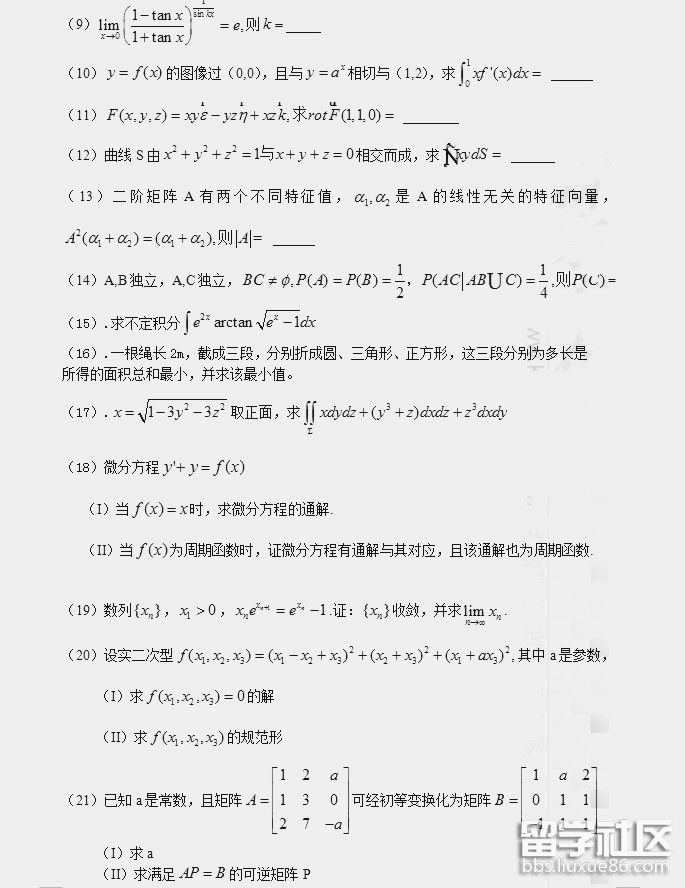 (9) lim x→0 ((1−tan x)/(1+tan x))^(1/sin kx) = e,则 k = ____
(10) y = f(x) 的图像过(0,0), 且与 y = a^x 相切与(1,2), 求 ∫₀¹ xf'(x)dx = ____
(11) F(x, y, z) = xyε − yzη + xzk, 求rotF(1,1,0) = ____
(12) 曲线 S 由 x² + y² + z² = 1与x + y + z = 0 相交而成, 求 ÑxydS = ____
(13) 二阶矩阵 A 有两个不同特征值, α₁,α₂ 是 A 的线性无关的特征向量,
A²(α₁ + α₂) = (α₁ + α₂),则|A| = ____
(14) A,B 独立, A,C 独立, BC ≠ ϕ, P(A) = P(B) = 1/2, P(AC|AB∪C) = 1/4,则P(C) =
(15).求不定积分 ∫ e^(2x) arctan √(e^x − 1)dx
(16).一根绳长 2m, 截成三段, 分别折成圆、三角形、正方形, 这三段分别为多长是
所得的面积总和最小, 并求该最小值。
(17). x = √(1−3y²−3z²) 取正面, 求 ∬_Σ xdydz + (y³ + z)dxdz + z³dxdy
(18) 微分方程 y'+ y = f(x)
(I) 当 f(x) = x 时, 求微分方程的通解.
(II) 当 f(x) 为周期函数时, 证微分方程有通解与其对应, 且该通解也为周期函数.
(19) 数列{xₙ}, x₁ > 0, xₙe^(xₙ₊₁) = e^(xₙ) − 1.证: {xₙ}收敛, 并求 lim n→∞ xₙ.
(20) 设实二次型 f(x₁, x₂, x₃) = (x₁ − x₂ + x₃)² + (x₂ + x₃)² + (x₁ + ax₃)², 其中 a 是参数,
(I) 求 f(x₁, x₂, x₃) = 0 的解
(II) 求 f(x₁, x₂, x₃) 的规范形
(21) 已知 a 是常数, 且矩阵 A = [1 2 a; 1 3 0; 2 7 −a] 可经初等变换化为矩阵 B = [1 a 2; 0 1 1; −1 1 1]
(I) 求 a
(II) 求满足 AP = B 的可逆矩阵 P
留学社区
bbs.liuxue86.com